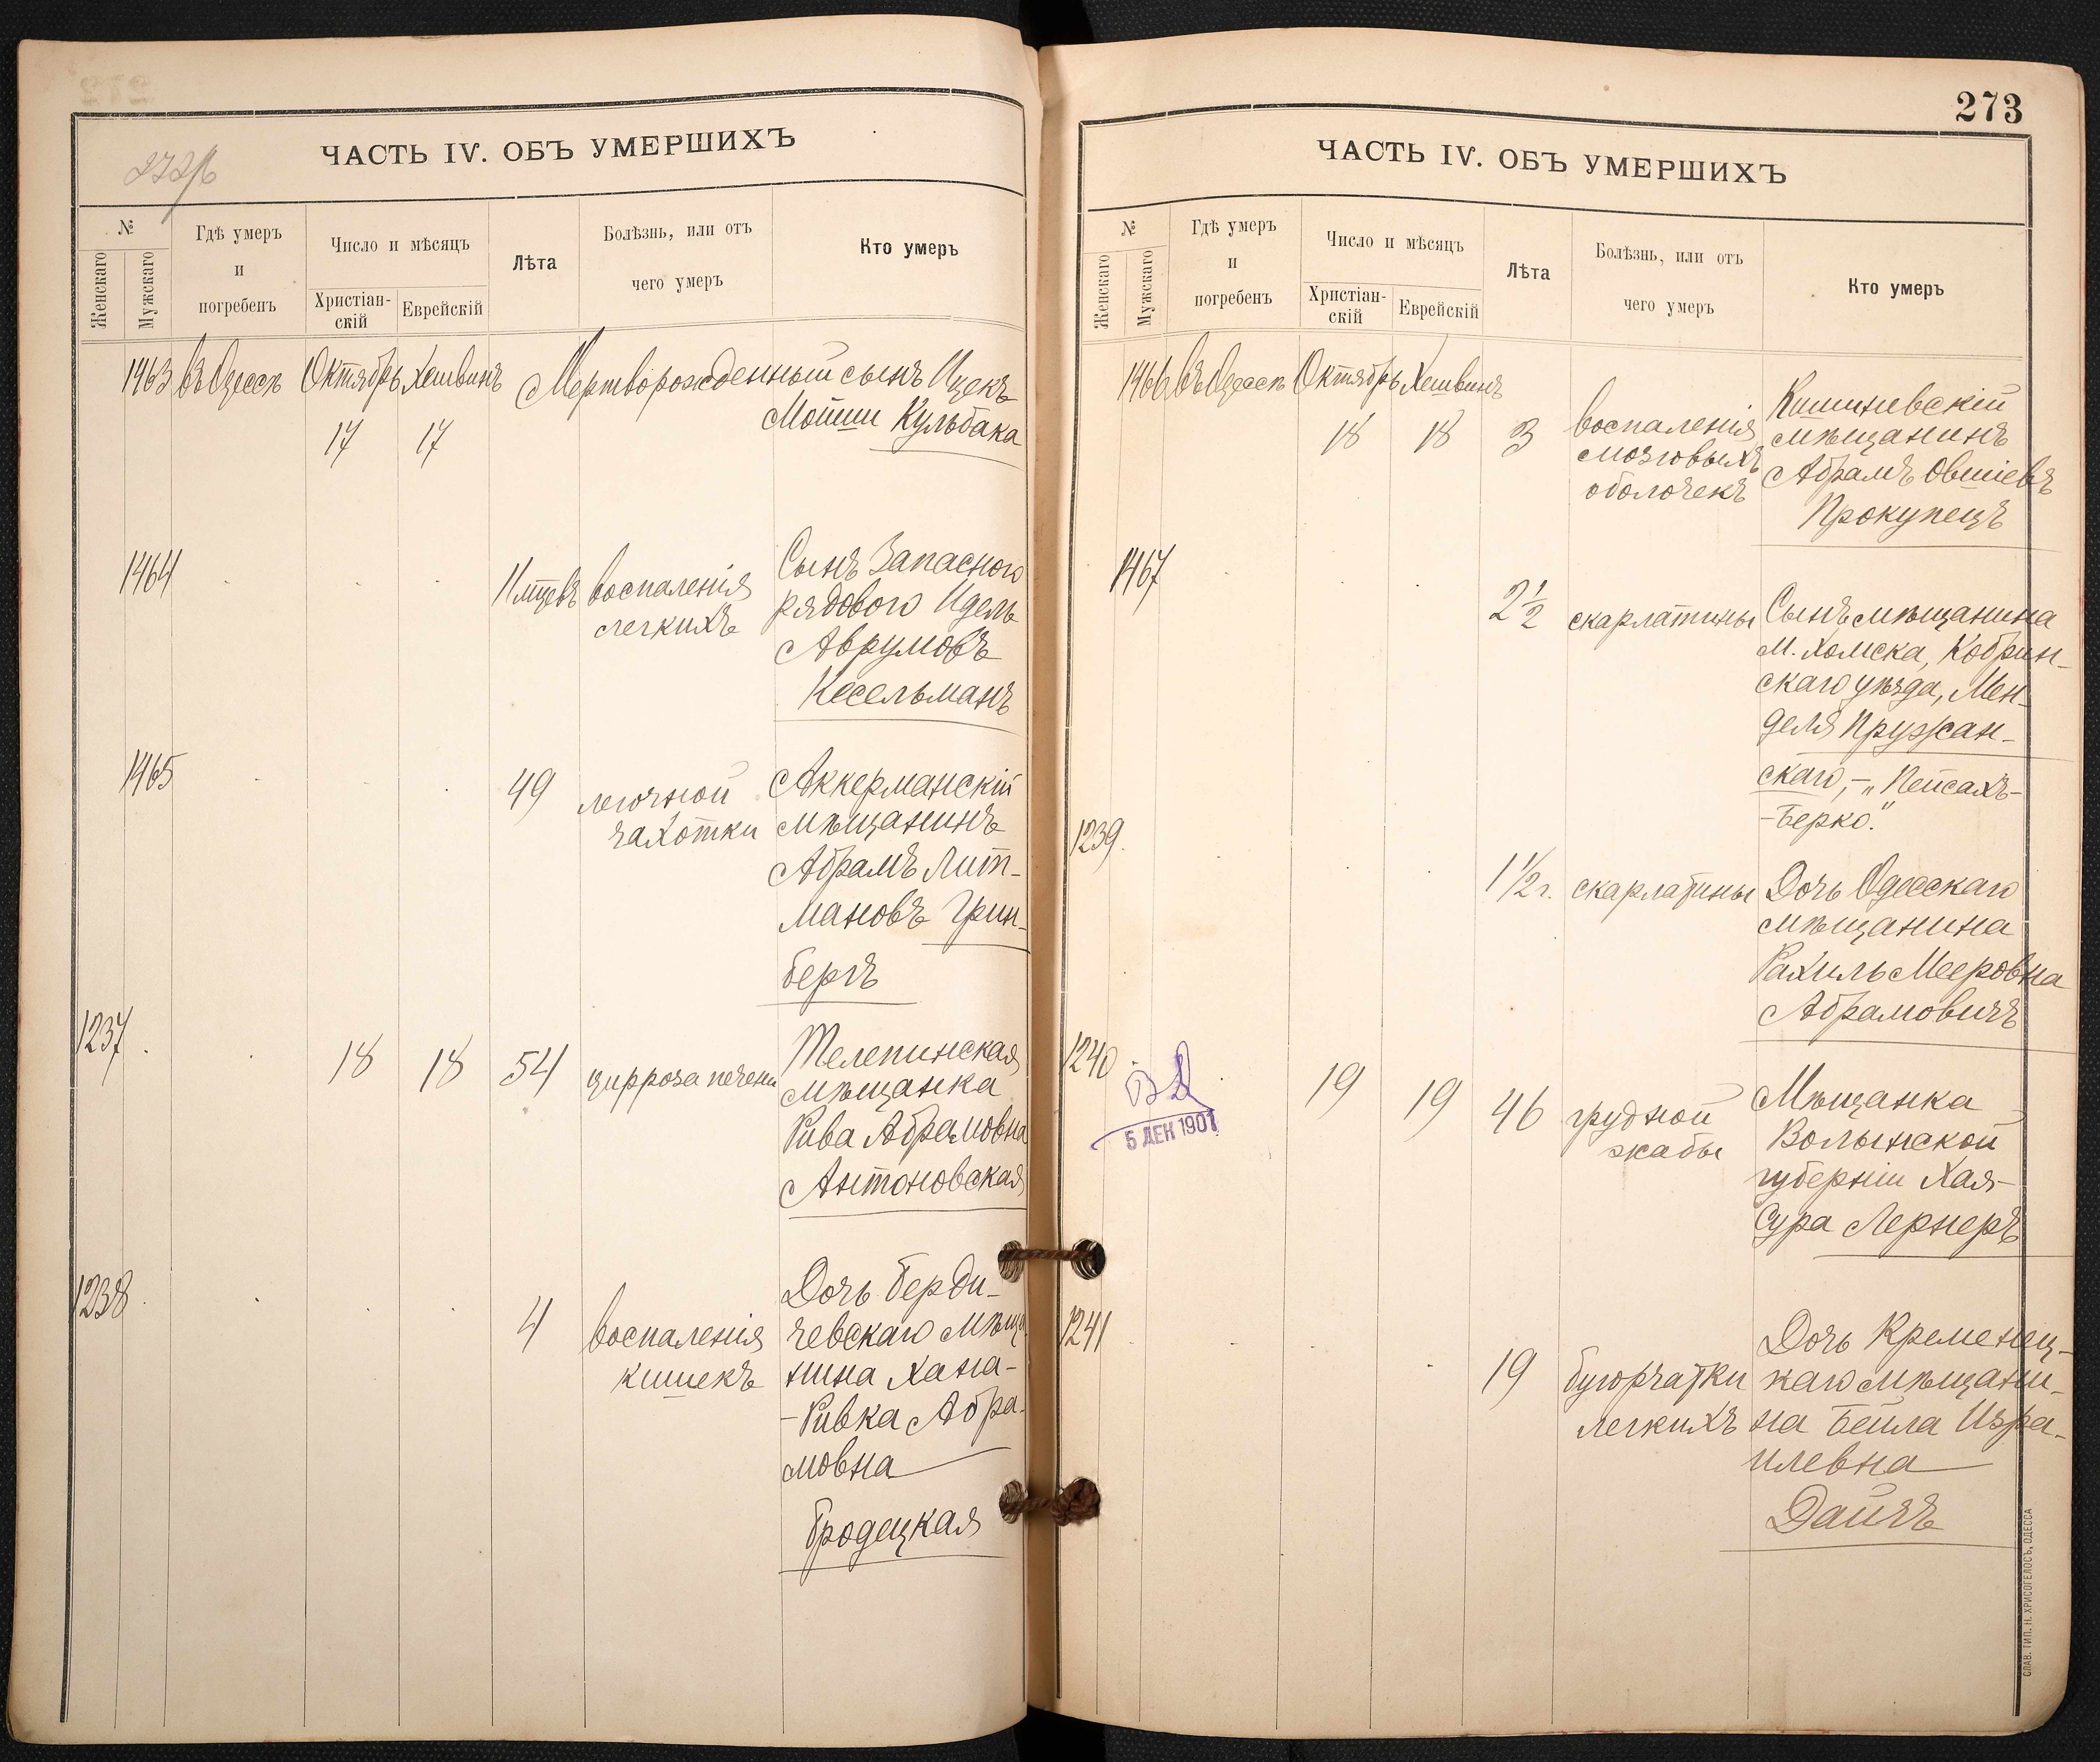 ЧАСТЬ IV. ОБЪ УМЕРШИХЪ
№
Женскаго
Мужскаго
Гдѣ умеръ
и
погребенъ
Число и мѣсяцъ
Христіан-
скій
Еврейскій
Лѣта
Болѣзнь, или отъ
чего умеръ
Кто умеръ
1463 въ Одессѣ Октябрь Хешвинъ Мертворожденный сынъ Ицекъ
17 17 Мойши Кульбака
1464
11 мцевъ
воспаленія
легкихъ
Сынъ Запасного
рядового Идель
Аврумовъ
Кесельманъ
1465
49
легочной
чахотки
Аккерманскій
мѣщанинъ
Абрамъ Лит-
мановъ Грин-
бергъ
1237
18 18 54
цирроза печени
Телепинская
мѣщанка
Рива Абрамовна
Антоновская
1238
4
воспаленія
кишекъ
Дочь Берди-
чевскаго мѣща
нина Хана-
-Ривка Абра-
мовна
Бродецкая
273
ЧАСТЬ IV. ОБЪ УМЕРШИХЪ
№
Женскаго
Мужскаго
Гдѣ умеръ
и
погребенъ
Число и мѣсяцъ
Христіан-
скій
Еврейскій
Лѣта
Болѣзнь, или отъ
чего умеръ
Кто умеръ
1466 въ Одессѣ Октябрь Хешвинъ
18 18 3
воспаленія
мозговыхъ
оболочекъ
Кишиневскій
мѣщанинъ
Абрамъ Овшіевъ
Прокупецъ
1467
2 1/2
скарлатины
Сынъ мѣщанина
м. Хомска, Кобрин-
скаго уѣзда, Мен-
деля Пружан-
скаго, - „Пейсахъ-
-Берко."
1239.
1 1/2 г.
скарлатины
Дочь Одесскаго
мѣщанина
Рахиль Мееровна
Абрамовичъ
1240
5 ДЕК 1901
19 19 46
грудной
жабы
Мѣщанка
Волынской
губерніи Хая-
Сура Лернеръ
1241
19
бугорчатки
легкихъ
Дочь Кременец-
каго мѣщани-
на Бейла Изра-
илевна
Дайчъ
СЛАВ. ТИП. Н. ХРИСОГЕЛОСЪ, ОДЕССА